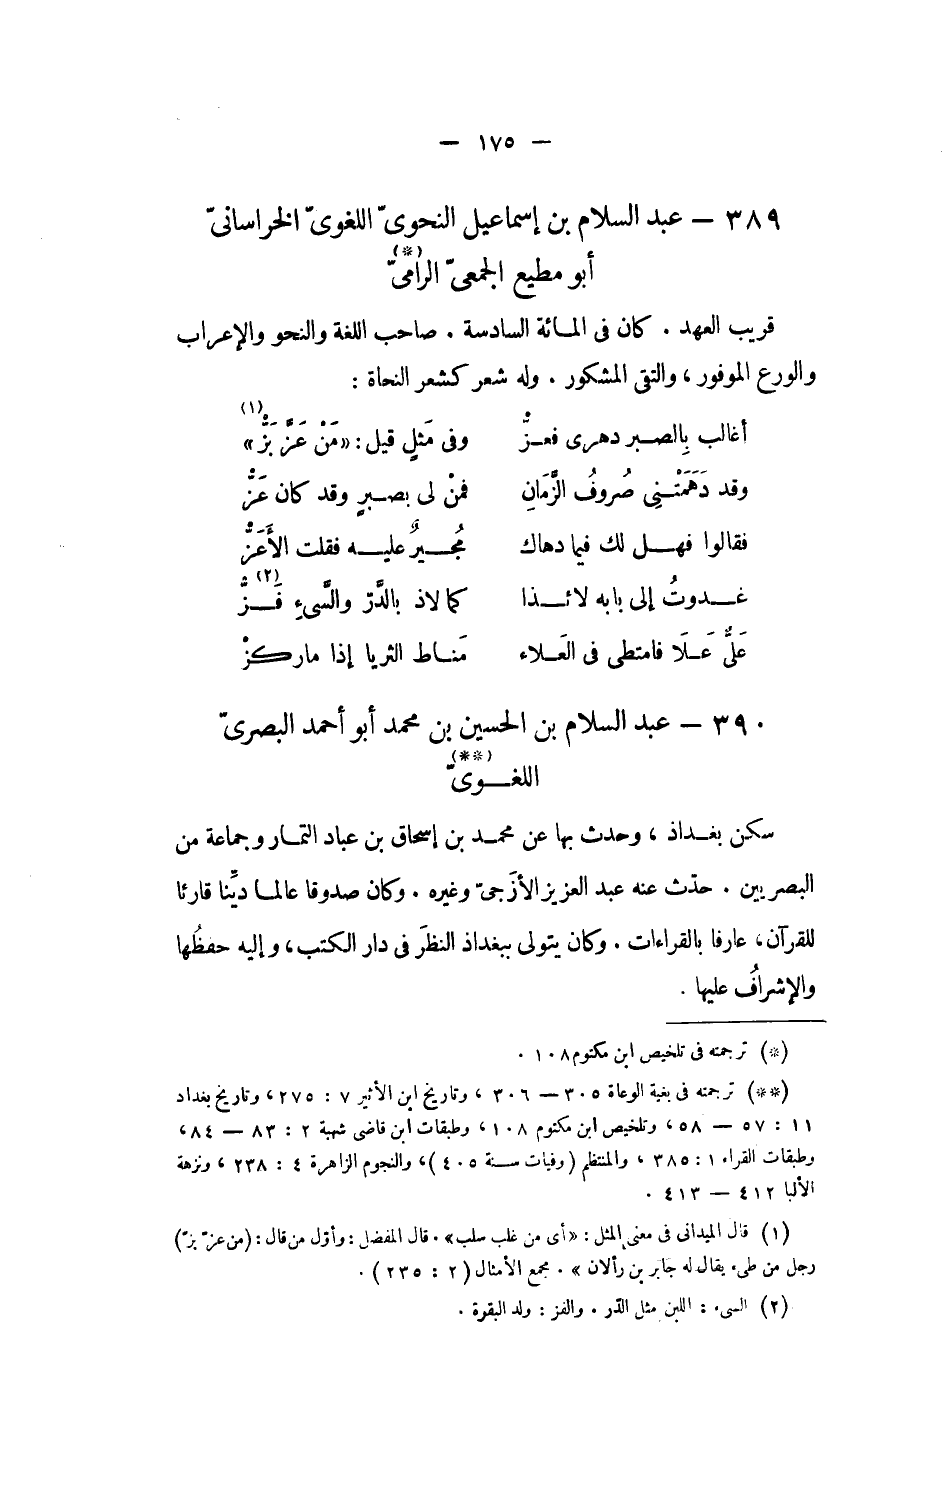 — ١٧٥ —
٣٨٩ — عبد السلام بن إسماعيل النحوىّ اللغوىّ الخراسانىّ
أبو مطيع الجمعىّ الرامىّ (*)
قريب العهد . كان فى المائة السادسة . صاحب اللغة والنحو والإعراب
والورع الموفور ، والتقى المشكور . وله شعر كشعر النحاة :
أغالب بِالصبر دهرى فعزّْ وفى مَثلٍ قيل : «مَنْ عَزَّ بَزّْ» (١)
وقد دَهَمَتْنِى صُروفُ الزَّمَانِ فمنْ لى بصبرٍ وقد كان عَزّْ
فقالوا فهل لك فيما دهاك مُجيرٌ عليه فقلت الأَعَزّْ
غدوتُ إلى بابه لائذا كما لاذ بالدَّرّ والسَّىءِ فَزّْ (٢)
عَلىٌّ عَلَا فامتطى فى العَلاء مَناط الثريا إذا ماركزْ
٣٩٠ — عبد السلام بن الحسين بن محمد أبو أحمد البصرىّ
اللغوىّ (**)
سكن بغداذ ، وحدث بها عن محمد بن إسحاق بن عباد التمار وجماعة من
البصريين . حدّث عنه عبد العزيز الأزَجىّ وغيره . وكان صدوقا عالما ديِّنا قارئا
للقرآن ، عارفا بالقراءات . وكان يتولى ببغداذ النظرَ فى دار الكتب ، وإليه حفظُها
والإشرافُ عليها .
(*) ترجمته فى تلخيص ابن مكتوم ١٠٨ .
(**) ترجمته فى بغية الوعاة ٣٠٥ — ٣٠٦ ، وتاريخ ابن الأثير ٧ : ٢٧٥ ، وتاريخ بغداد
١١ : ٥٧ — ٥٨ ، وتلخيص ابن مكتوم ١٠٨ ، وطبقات ابن قاضى شهبة ٢ : ٨٣ — ٨٤ ،
وطبقات القراء ١ : ٣٨٥ ، والمنتظم (وفيات سنة ٤٠٥) ، والنجوم الزاهرة ٤ : ٢٣٨ ، ونزهة
الألبا ٤١٢ — ٤١٣ .
(١) قال الميدانى فى معنى المثل : «أى من غلب سلب» . قال المفضل : وأوّل من قال : (من عزّ بزّ)
رجل من طىء يقال له جابر بن رألان » . مجمع الأمثال (٢ : ٢٣٥) .
(٢) السىء : اللبن مثل الدّر . والفز : ولد البقرة .